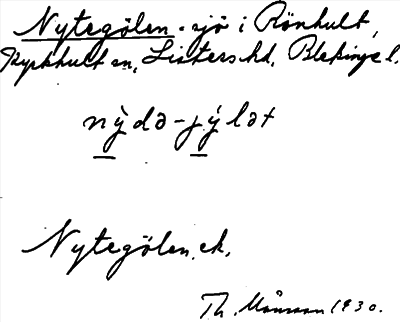 Nytegölen. sjö i Rönhult,
Kyrkhult sn, Listers hd, Blekinge l.
nỳdə-jýlət
Nytegölen, ek.
Th. Månsson 1930.